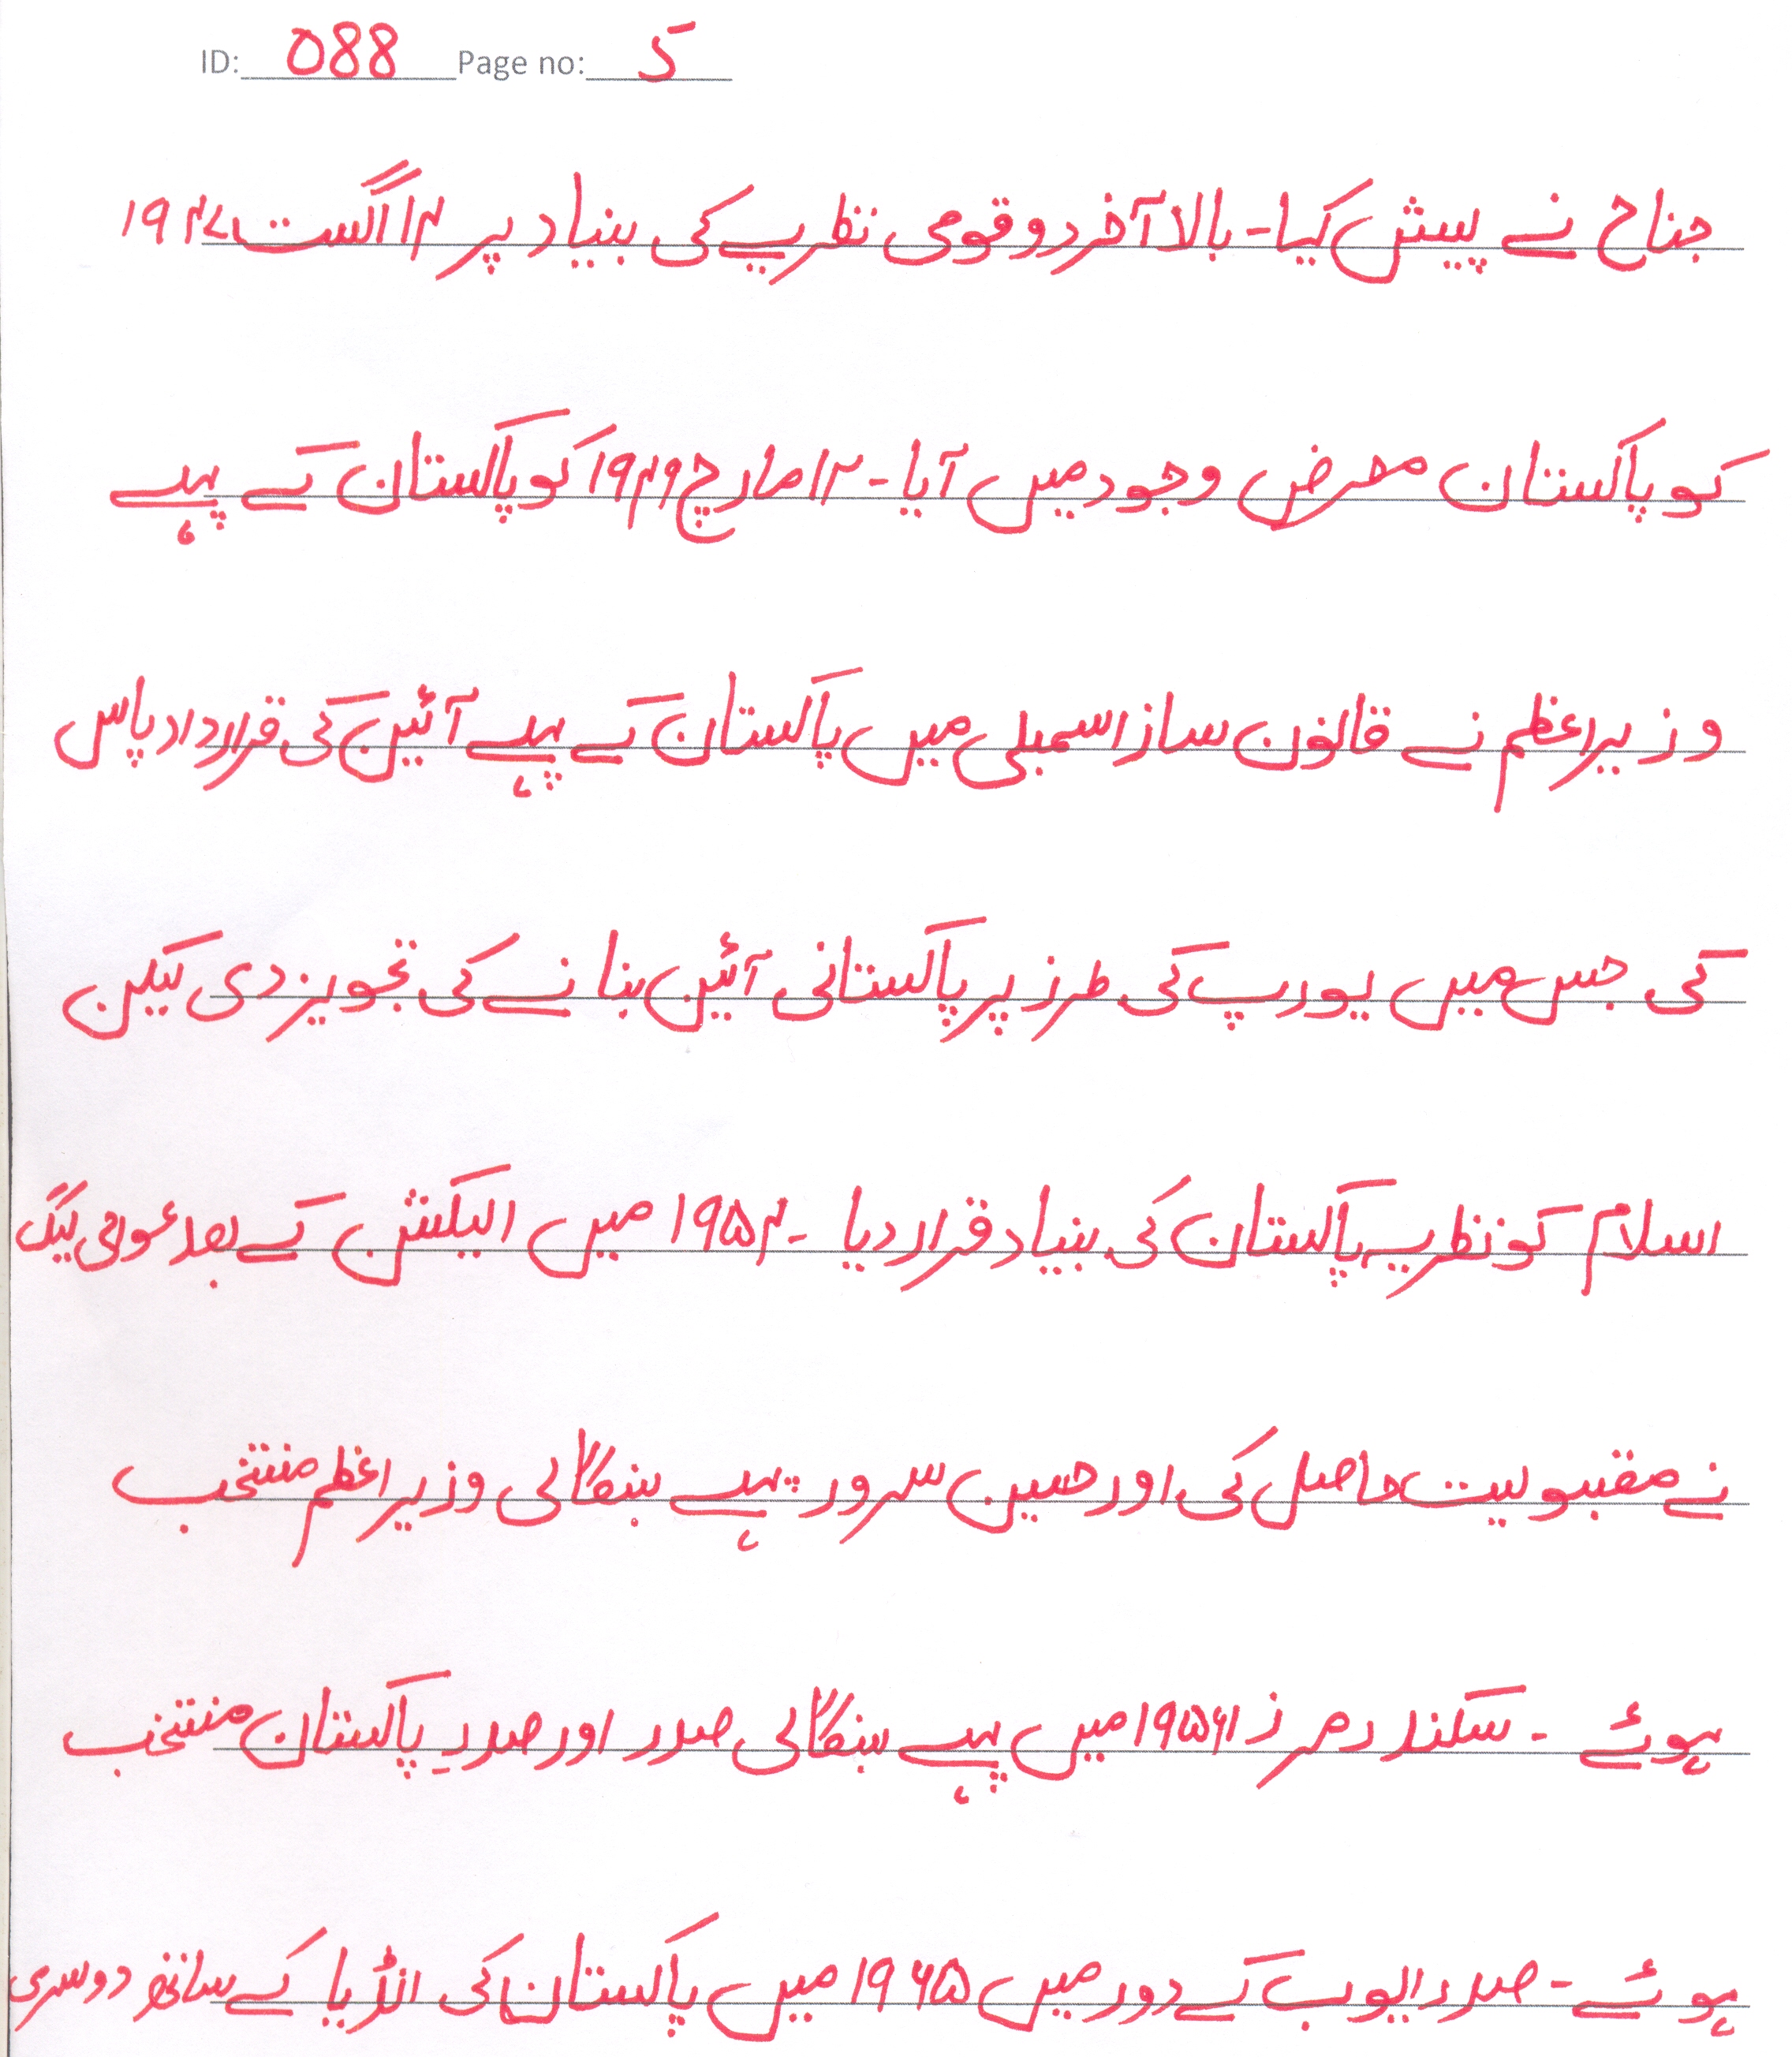 ID: 088 Page no: 5
جناح نے پیش کیا۔ بالا آخر دو قومی نظریے کی بنیاد پر ۱۴ اگست ۱۹۴۷
کو پاکستان معرض وجود میں آیا۔ ۱۲ مارچ ۱۹۴۹ کو پاکستان کے پہلے
وزیراعظم نے قانون ساز اسمبلی میں پاکستان کے پہلے آئین کی قرارداد پاس
کی جس میں یورپ کی طرز پر پاکستانی آئین بنانے کی تجویز دی لیکن
اسلام کو نظریہ پاکستان کی بنیاد قرار دیا ۔ ۱۹۵۴ میں الیکشن کے بعد عوامی لیگ
نے مقبولیت حاصل کی اور حسین سہرور پہلے بنگالی وزیراعظم منتخب
ہوئے ۔ سکندر مرزا ۱۹۵۶ میں پہلے بنگالی صدر اور صدرِ پاکستان منتخب
ہوئے ۔ صدر ایوب کے دور میں ۱۹۶۵ میں پاکستان کی انڈیا کے ساتھ دوسری